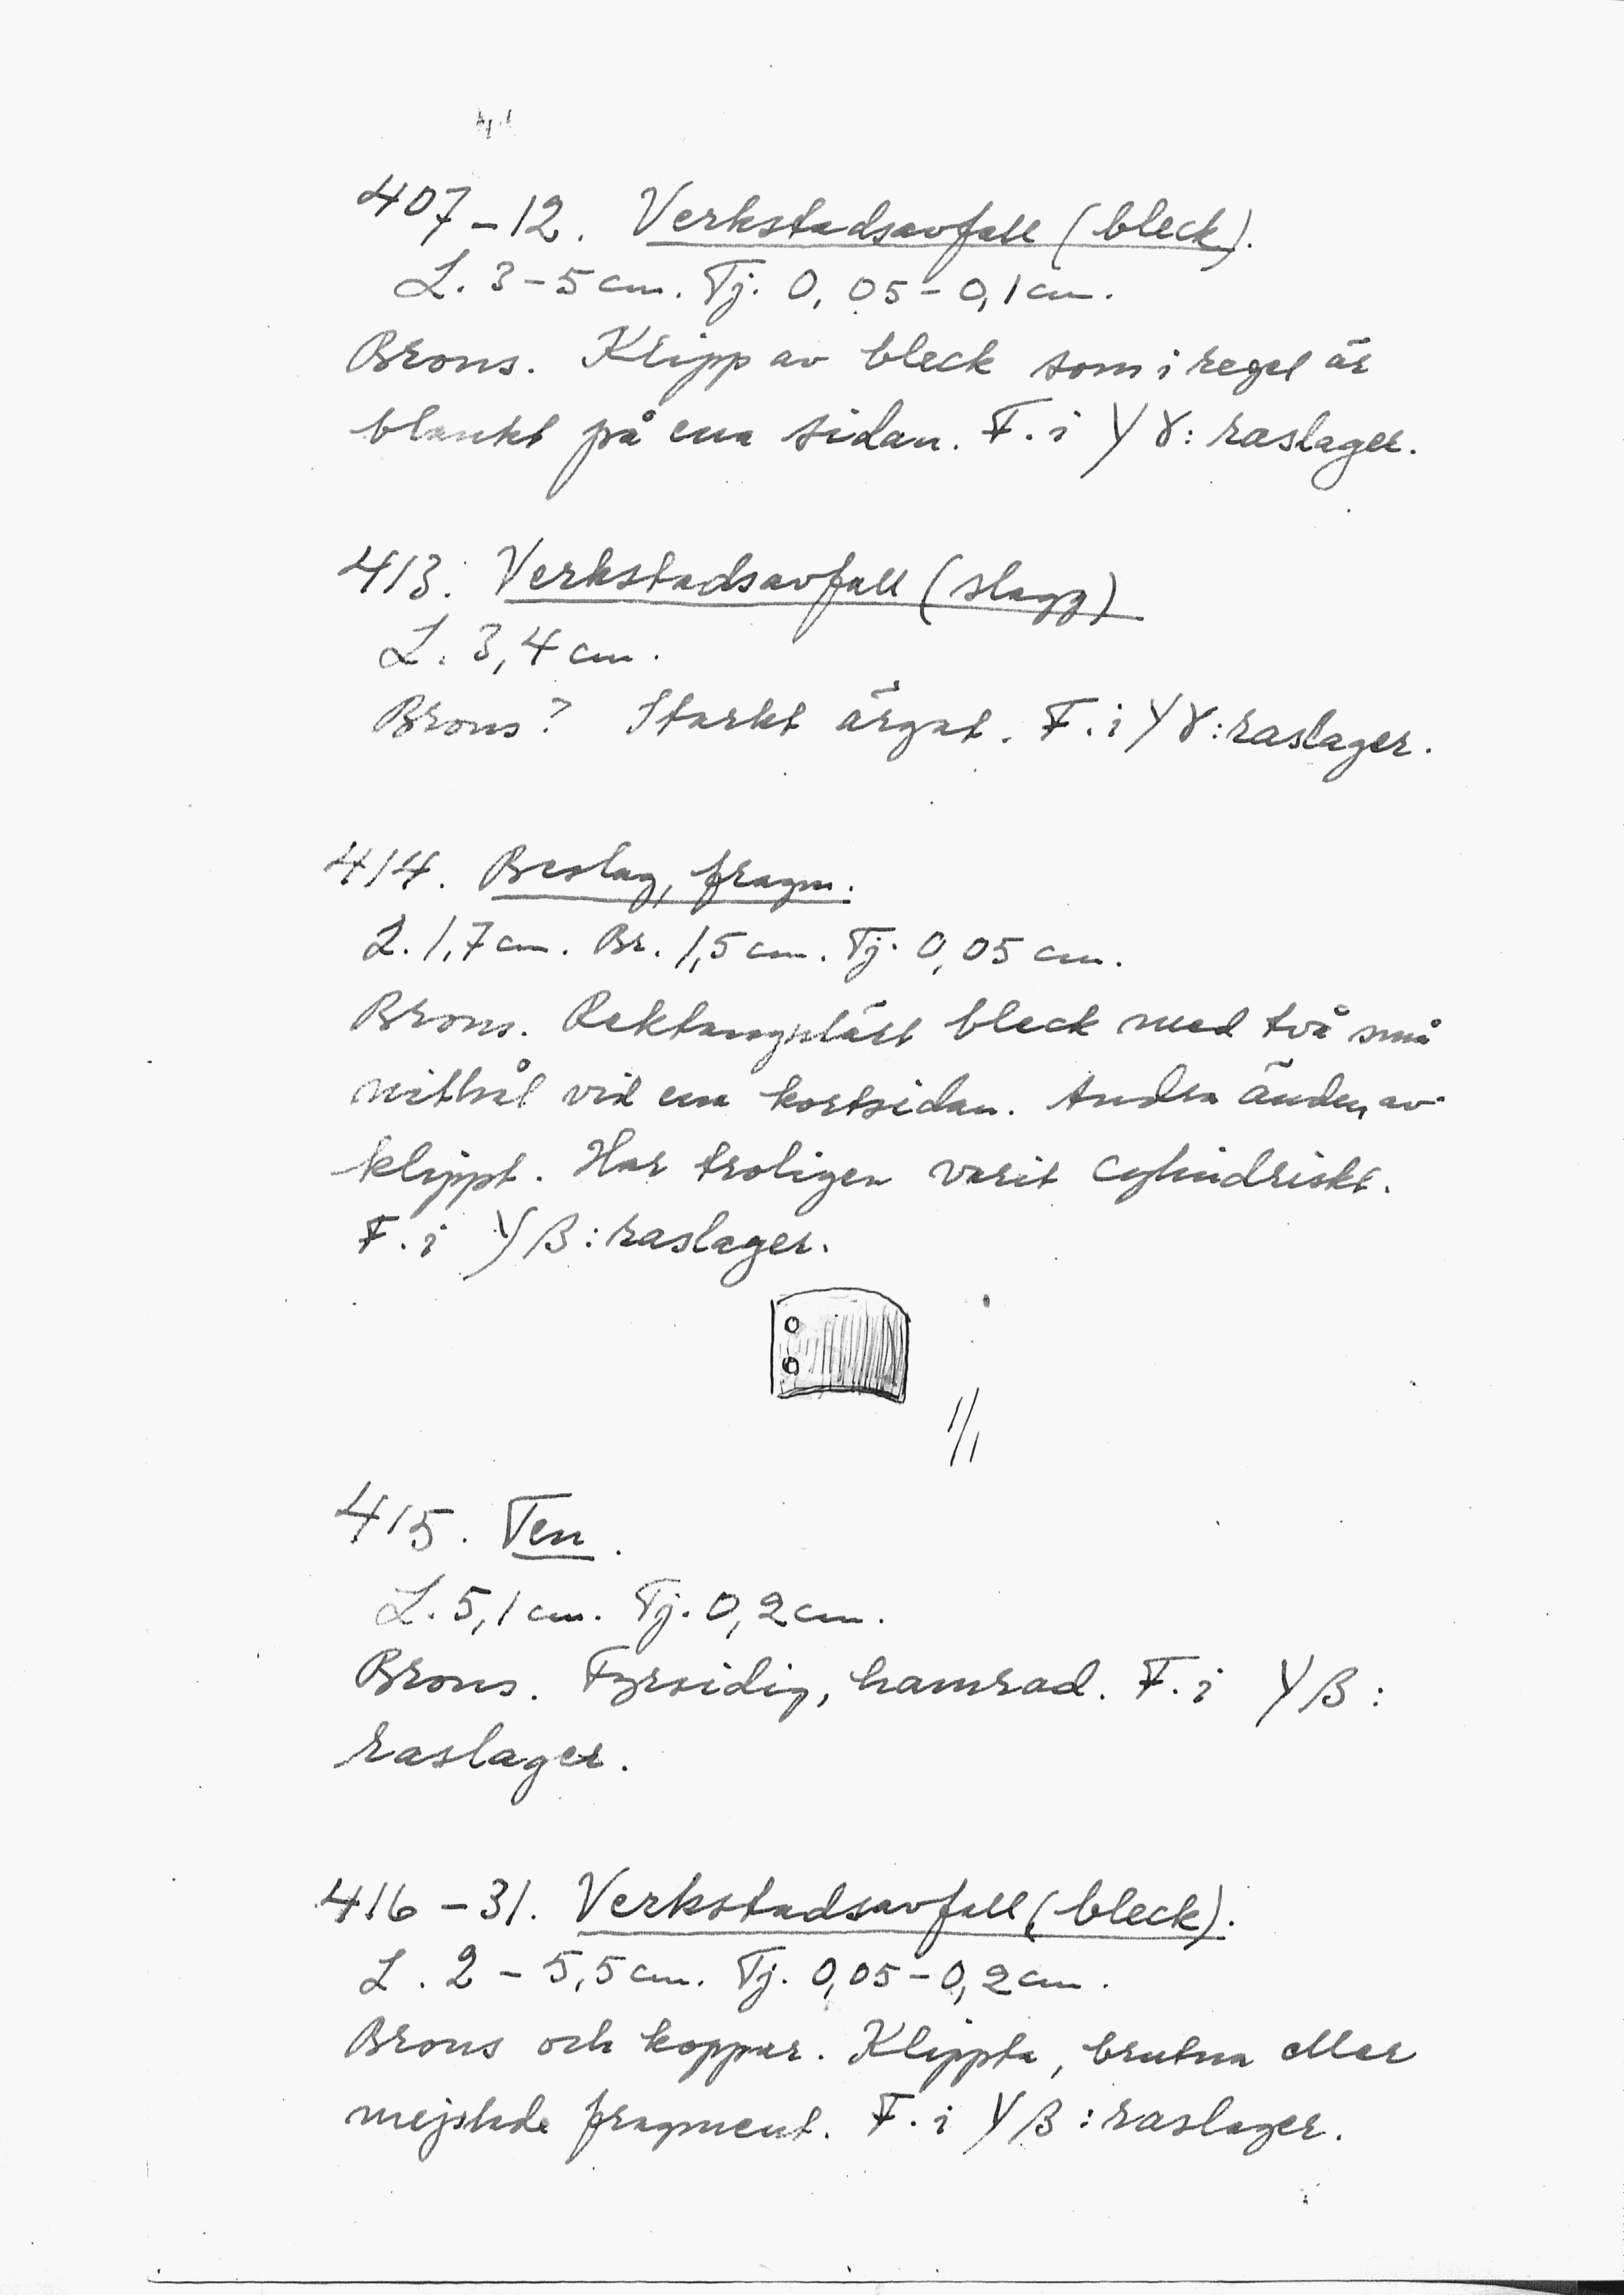 407-12. Verkstadsavfall (bleck).
L. 3-5 cm. Tj. 0,05-0,1 cm.
Brons. Klipp av bleck som i regel är
blankt på ena sidan. F. i Yγ: raslager.
413. Verkstadsavfall (slagg)
L. 3,4 cm.
Brons? Starkt ärgat. F. i Yγ: raslager.
414. Beslag, fragm.
L. 1,7 cm. Br. 1,5 cm. Tj. 0,05 cm.
Brons. Rektangulärt bleck med två små
nithål vid ena kortsidan. Andra änden av-
klippt. Har troligen varit cylindriskt.
F. i Yβ: raslager.
1/1
415. Ten.
L. 5,1 cm. Tj. 0,2 cm.
Brons. Fyrsidig, hamrad. F. i Yβ:
raslager.
416-31. Verkstadsavfall (bleck).
L. 2-5,5 cm. Tj. 0,05-0,2 cm.
Brons och koppar. Klippta, brutna eller
mejslade fragment. F. i Yβ: raslager.